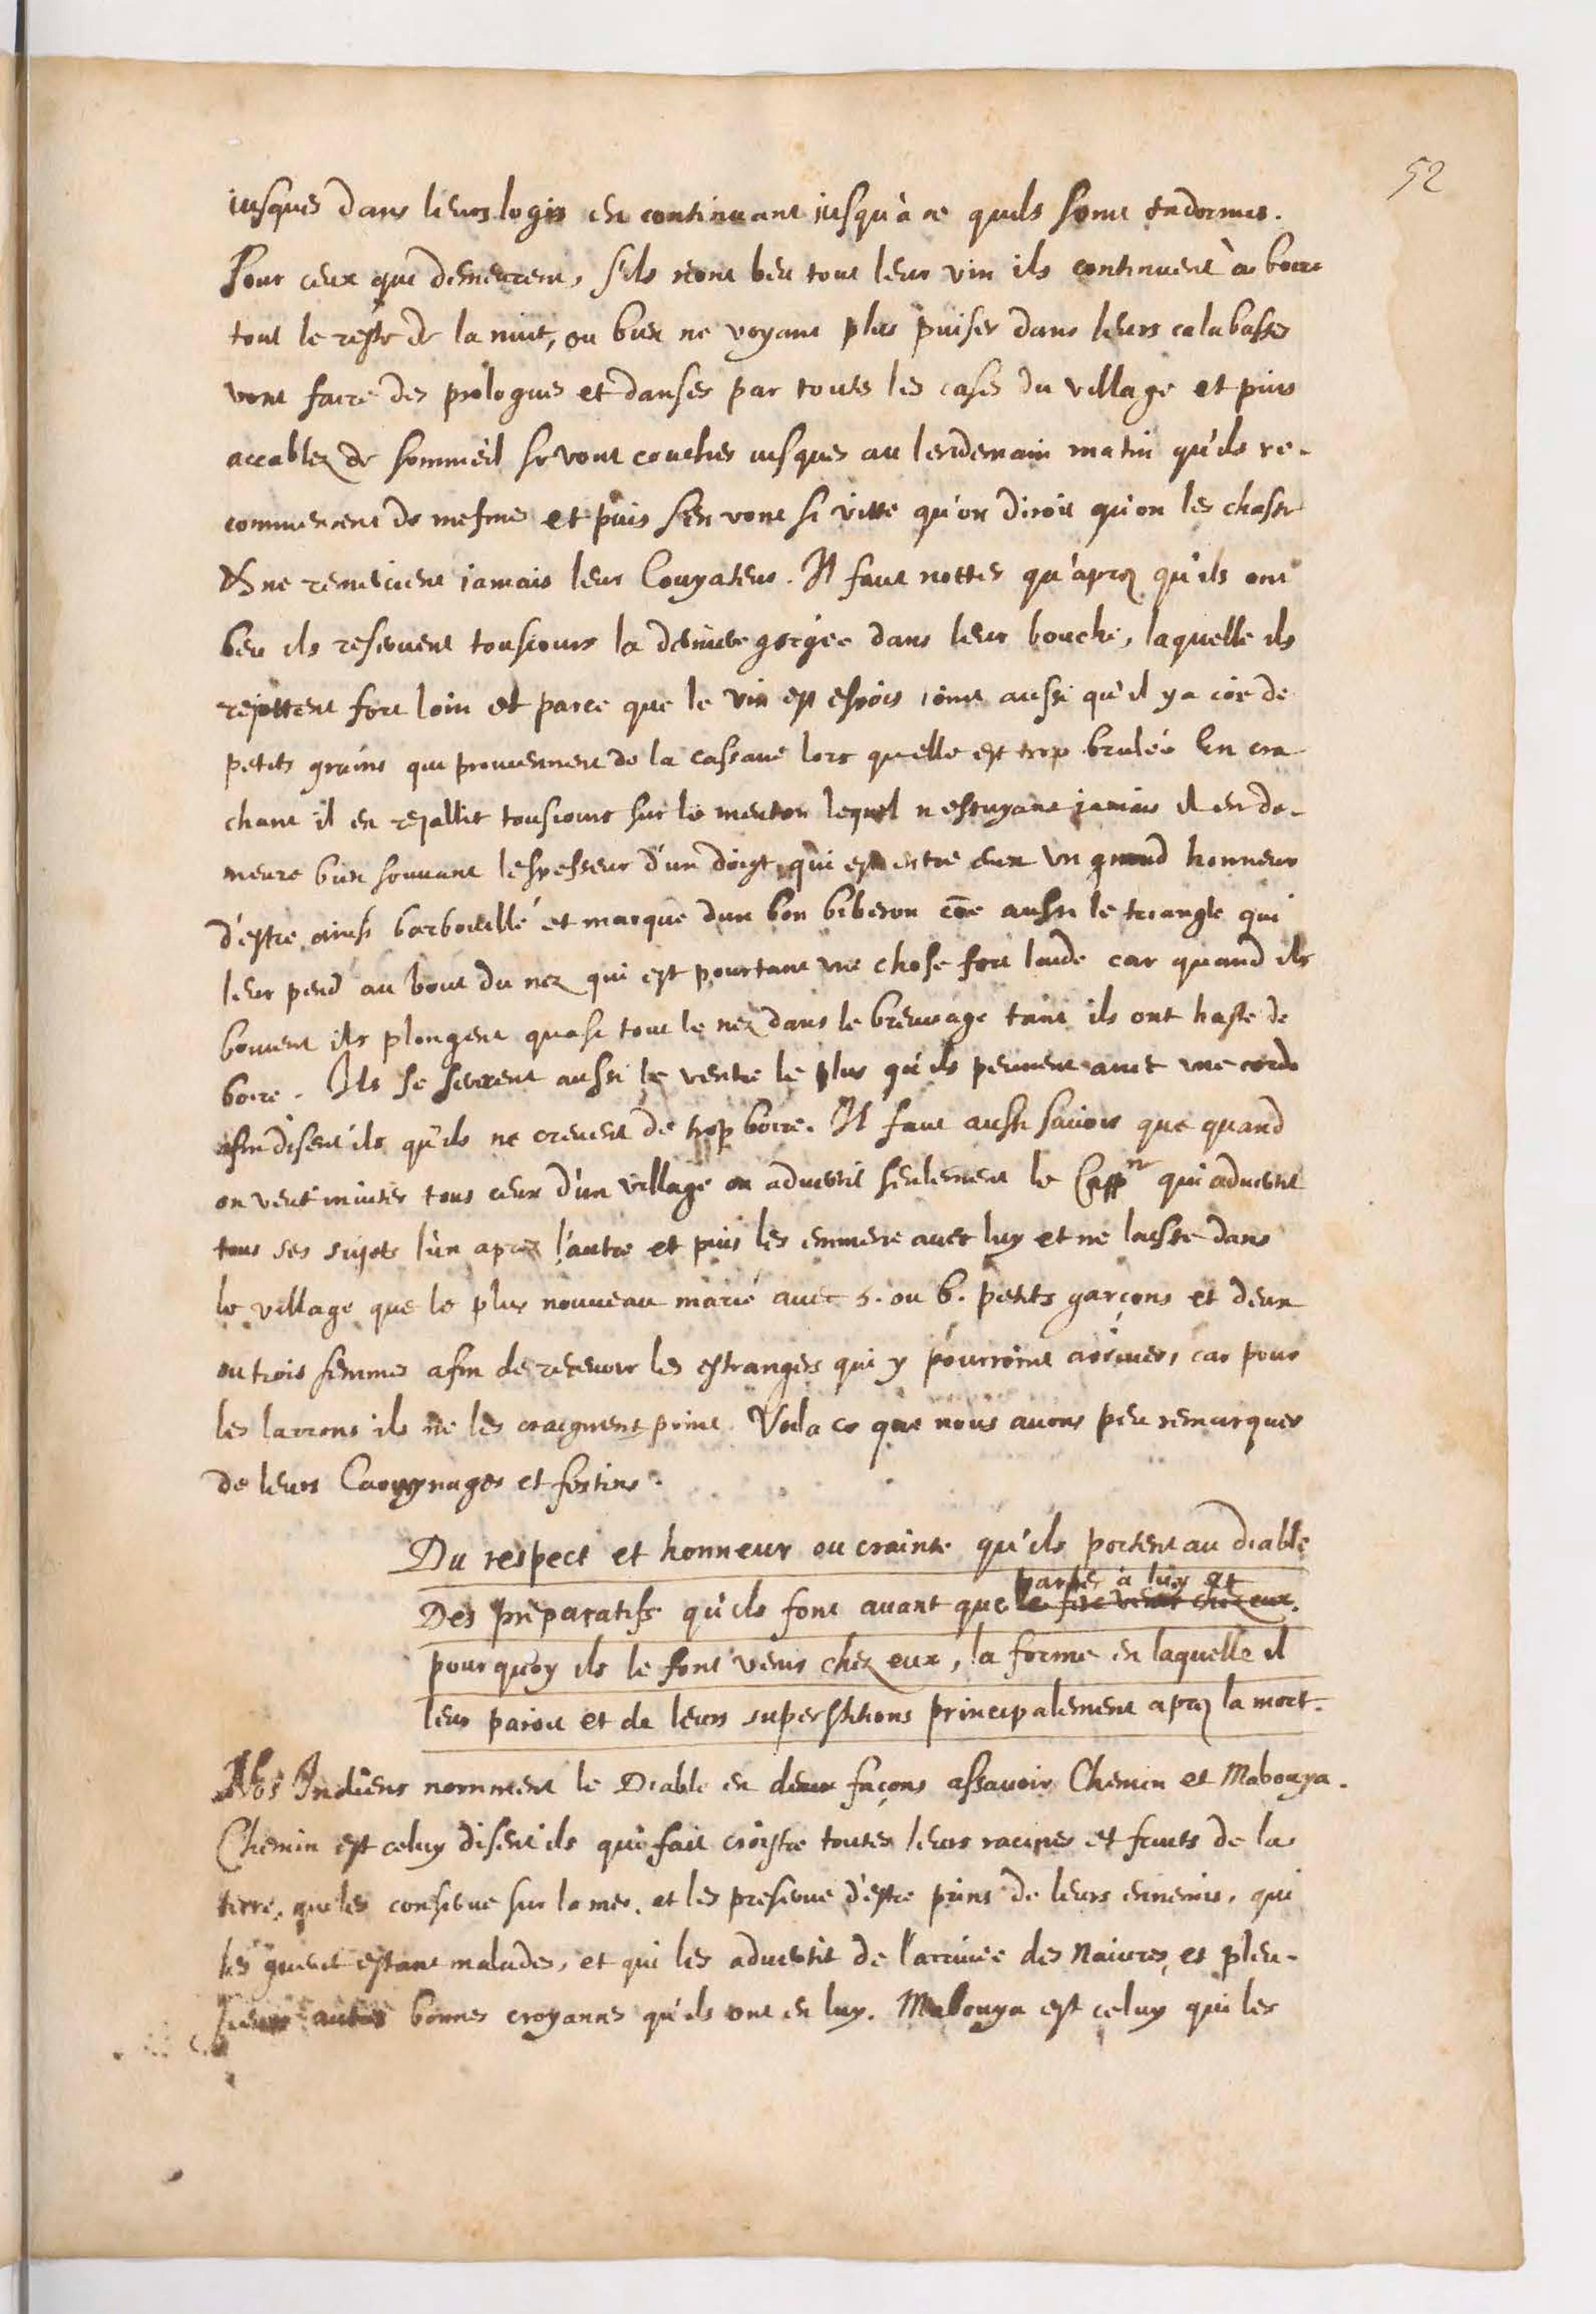 52
iusques dans leurs logis en continuant iusqu'à ce quils soint endormis.
Pour ceux qui demeurent, s'ils n'ont beu tout leur vin ils continuent à boire
tout le reste de la nuit, ou bien ne voyant plus puiser dans leurs calabasses
vont faire des prologues et danser par toutes les cases du village et puis
accablez de sommeil se vont coucher iusques au lendemain matin qu'ils re-
commencent de mesme et puis s'en vont si vitte qu'on diroit qu'on les chasse
& ne remercient iamais leur Couyateur. Il faut notter qu'aprez qu'ils ont
beu ils reservent tousiours la derniere gorgée dans leur bouche, laquelle ils
rejettent fort loin et parce que le vin est espois ioint aussi qu'il y a de
petits grains qui proviennent de la cassave lors quelle est trop brulée En cra
chant il en rejallit tousiours sur le menton lequel n'essuyant jamais il en de-
meure bien souvant lespesseur d'un doigt qui est entre eux un grand honneur
d'estre ainsi barbouillé et marque dun bon biberon cõe aussi le triangle qui
leur pend au bout du nez qui est pourtant une chose fort laide car quand ils
boivent ils plongent quasi tout le nez dans le breuvage tant ils ont haste de
boire. Ils se serrent aussi le ventre le plus qu'ils peuvent avec une corde
afin disent ils qu'ils ne crevent de trop boire. Il faut aussi savoir que quand
on veut inviter tous ceux d'un village on advertit seulement le Cappne qui advertit
tous ses sujets l'un aprez l'autre et puis les emmene avec luy et ne laisse dans
le village que le plus nouveau marié avec 5. ou 6. petits garçons et deux
ou trois femmes afin de recevoir les estrangers qui y pourroint arriver, car pour
les larrons ils ne les craignent point. Voila ce que nous avons peu remarquer
de leurs Caouynages et festins.
Du respect et honneur ou crainte qu'ils portent au diable
Des preparatifs qu'ils font avant que parler à luy et
le fere venir chez eux.
pourquoy ils le font venir chez eux, la forme en laquelle il
leur paroit et de leurs superstitions principalement aprez la mort.
Nos Indiens nomment le Diable en deux façons assavoir Chemin et Mabouya.
Chemin est celuy disent ils qui fait croistre toutes leurs racines et fruits de la
terre, qui les conserve sur la mer, et les preserve d'estre prins de leurs ennemis, qui
les guerit estant malades, et qui les advertit de l'arrivée des Navires, et pleu-
sieurs autres bonnes croyances qu'ils ont en luy. Mabouya est celuy qui les